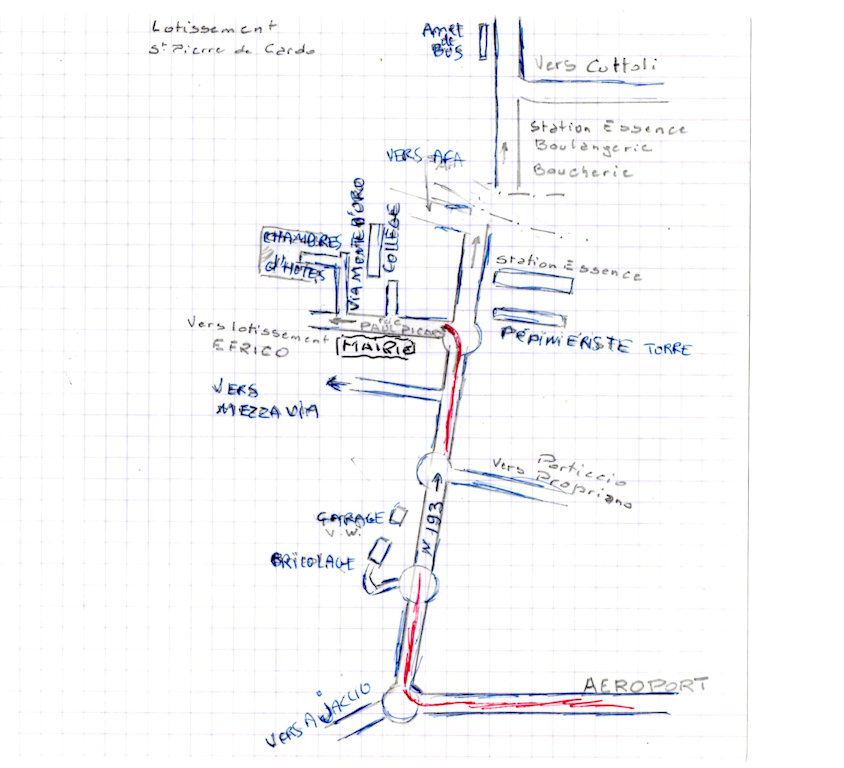 Lotissement
St Pierre de Cardo
Arret
de
BUS
Vers Cuttoli
Station Essence
Boulangerie
Boucherie
VERS AFA
VIA MONTE D'ORO
COLLEGE
CHAMBRES
d'HOTES
Station Essence
rue
PAUL
Vers lotissement
EFRICO
MAIRIE
PEPINIERISTE TORRE
VERS
MEZZAVIA
Vers Porticcio
Propriano
GARAGE
V.W.
N 193
BRICOLAGE
AEROPORT
VERS AJACCIO